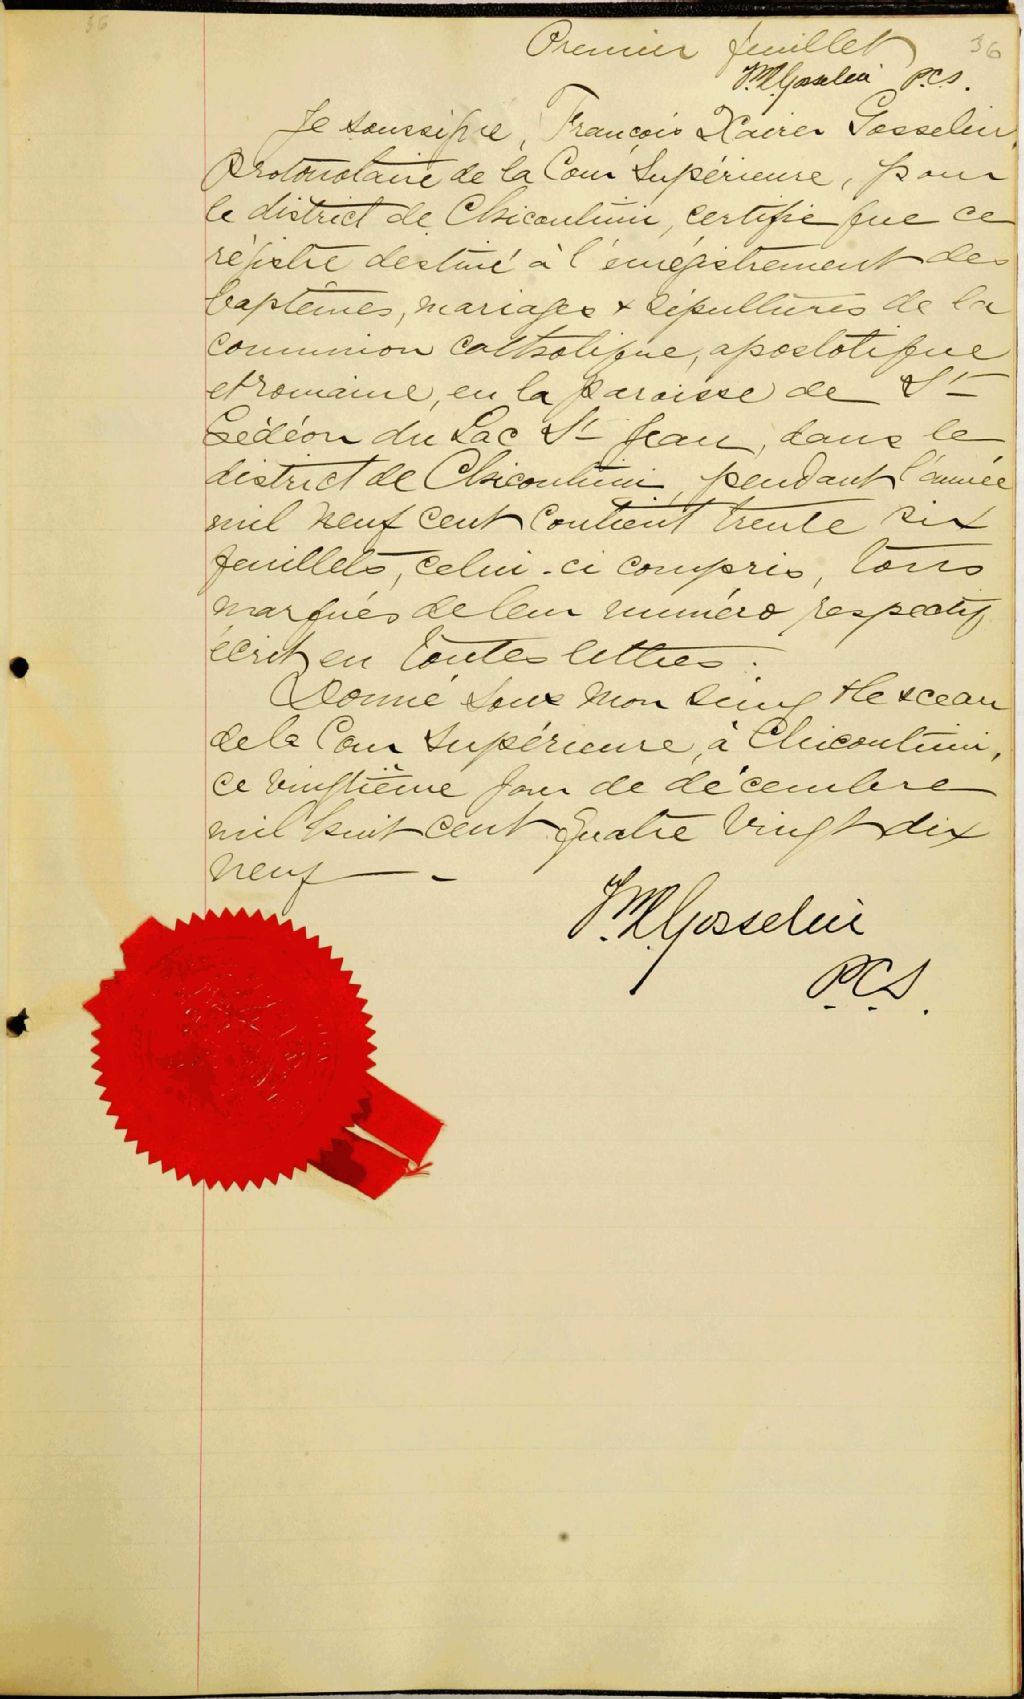 36
Premier feuillet 36
F.X. Gosselin P.C.S.
Je soussigné, François Xavier Gosselin,
Protonotaire de la Cour Supérieure, pour
le district de Chicoutimi, certifie que ce
régistre destiné à l'enrégistrement des
baptêmes, mariages & sépultures de la
communion catholique, apostolique
et romaine, en la paroisse de St
Gédéon du Lac St Jean, dans le
district de Chicoutimi, pendant l'année
mil neuf cent contient trente six
feuillets, celui-ci compris, tous
marqués de leur numéro respectif
écrit en toutes lettres.
Donné sous mon seing & le sceau
de la Cour Supérieure, à Chicoutimi,
ce vingtième jour de décembre
mil huit cent quatre vingt dix
neuf —
F.X. Gosselin
P.C.S.